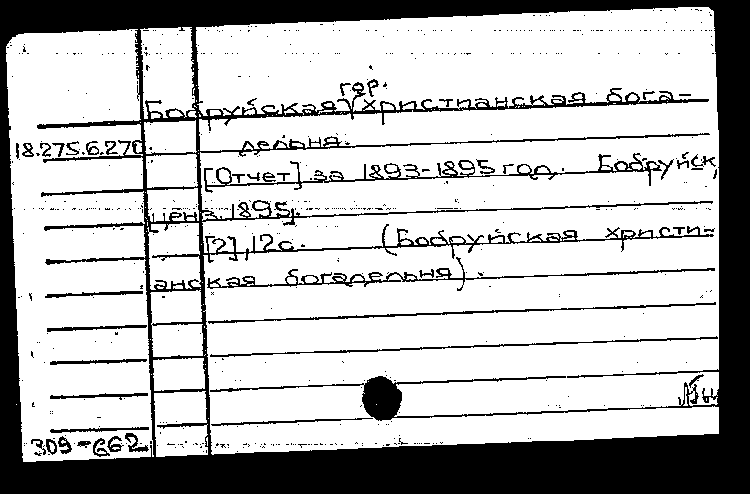 гор.
Бобруйская √ христианская бога-
18.275.6.270. дельня.
[Отчет] за 1893-1895 год. Бобруйск,
ценз. 1895].
[2], 12 с. (Бобруйская христи-
анская богадельня).
309-662